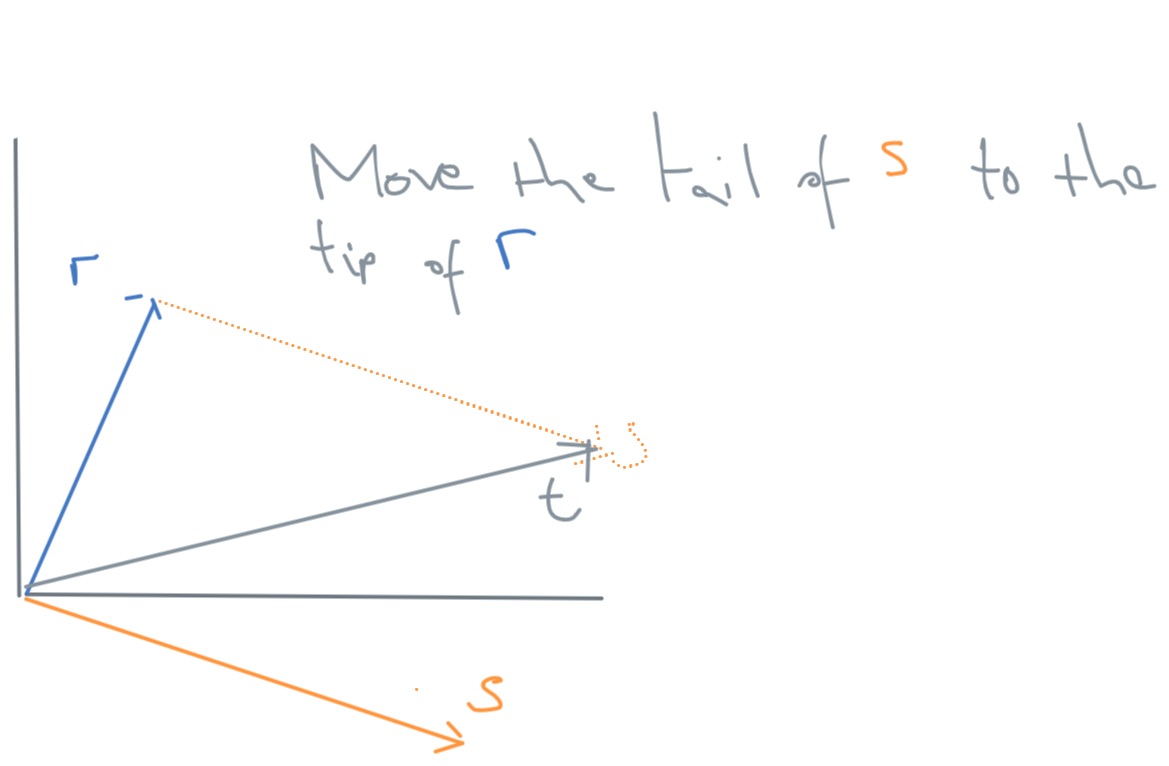 Move the tail of s to the
tip of r
r
s
t
s